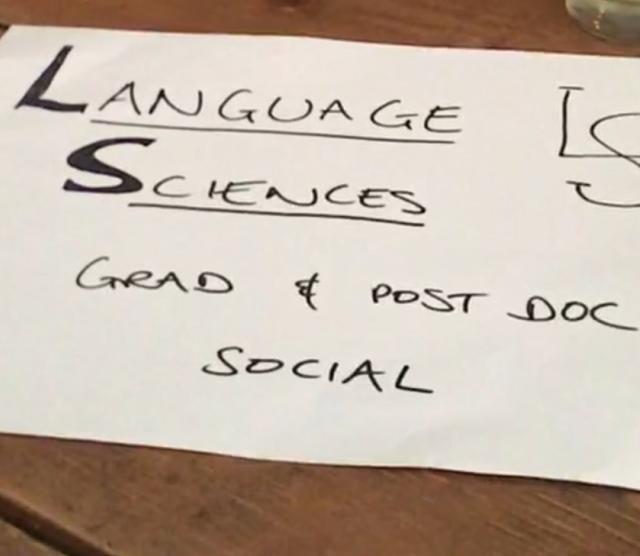 LANGUAGE
SCIENCES
GRAD & POST DOC
SOCIAL